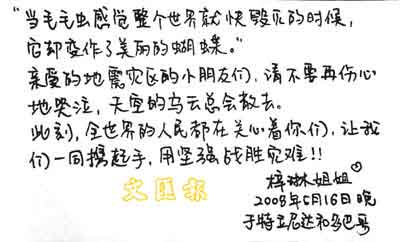 “当毛毛虫感觉整个世界就快毁灭的时候，
它却变作了美丽的蝴蝶。”
亲爱的地震灾区的小朋友们，请不要再伤心
地哭泣，天空的乌云总会散去。
此刻，全世界的人民都在关心着你们，让我
们一同携起手，用坚强战胜灾难！！
文汇报
梓琳姐姐
2008年5月16日晚
于特立尼达和多巴哥